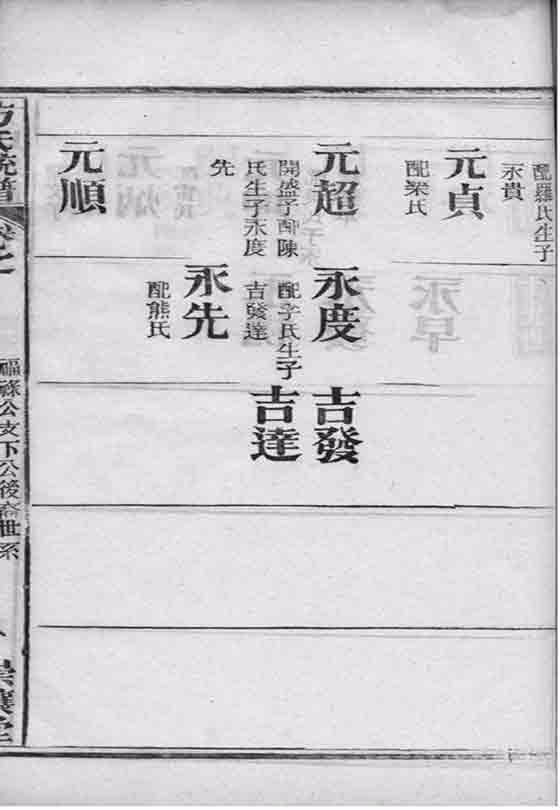 配羅氏生子
永貴
元貞
配梁氏
元超
開盛子配陳
氏生子永度
先
元順
永度
配李氏生子
吉發達
永先
配熊氏
吉發
吉達
方氏統譜
福祿公支下公後裔世系